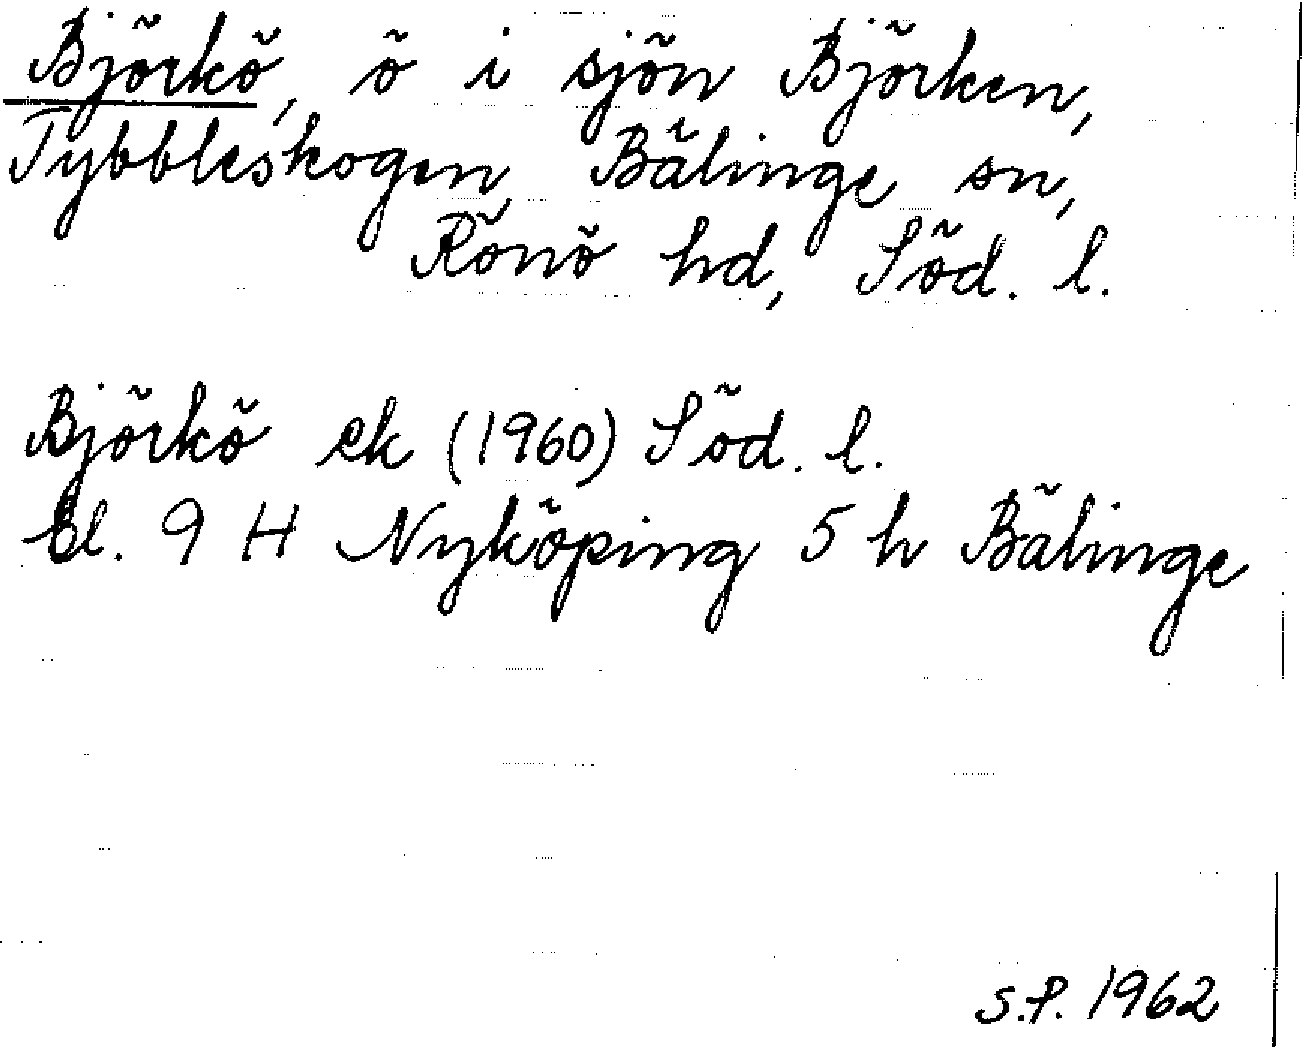 Björkö, ö i sjön Björken,
Tybbleskogen, Bälinge sn,
Rönö hd, Söd. l.
Björkö ek (1960) Söd. l.
bl. 9 H Nyköping 5 h Bälinge
S.P. 1962